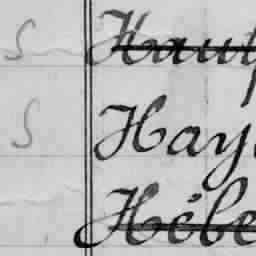 S Haut
S Hay
Hébe